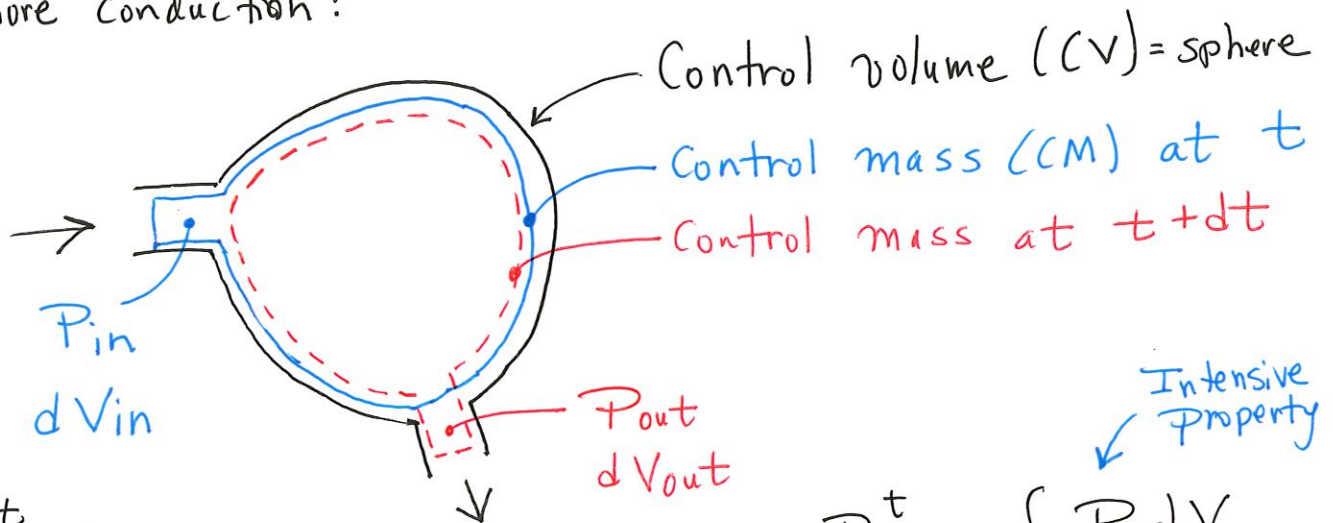 Conduction:
Control volume (CV) = sphere
Control mass (CM) at t
Control mass at t + dt
Pin
dVin
Pout
dVout
Intensive
Property
t
P dV